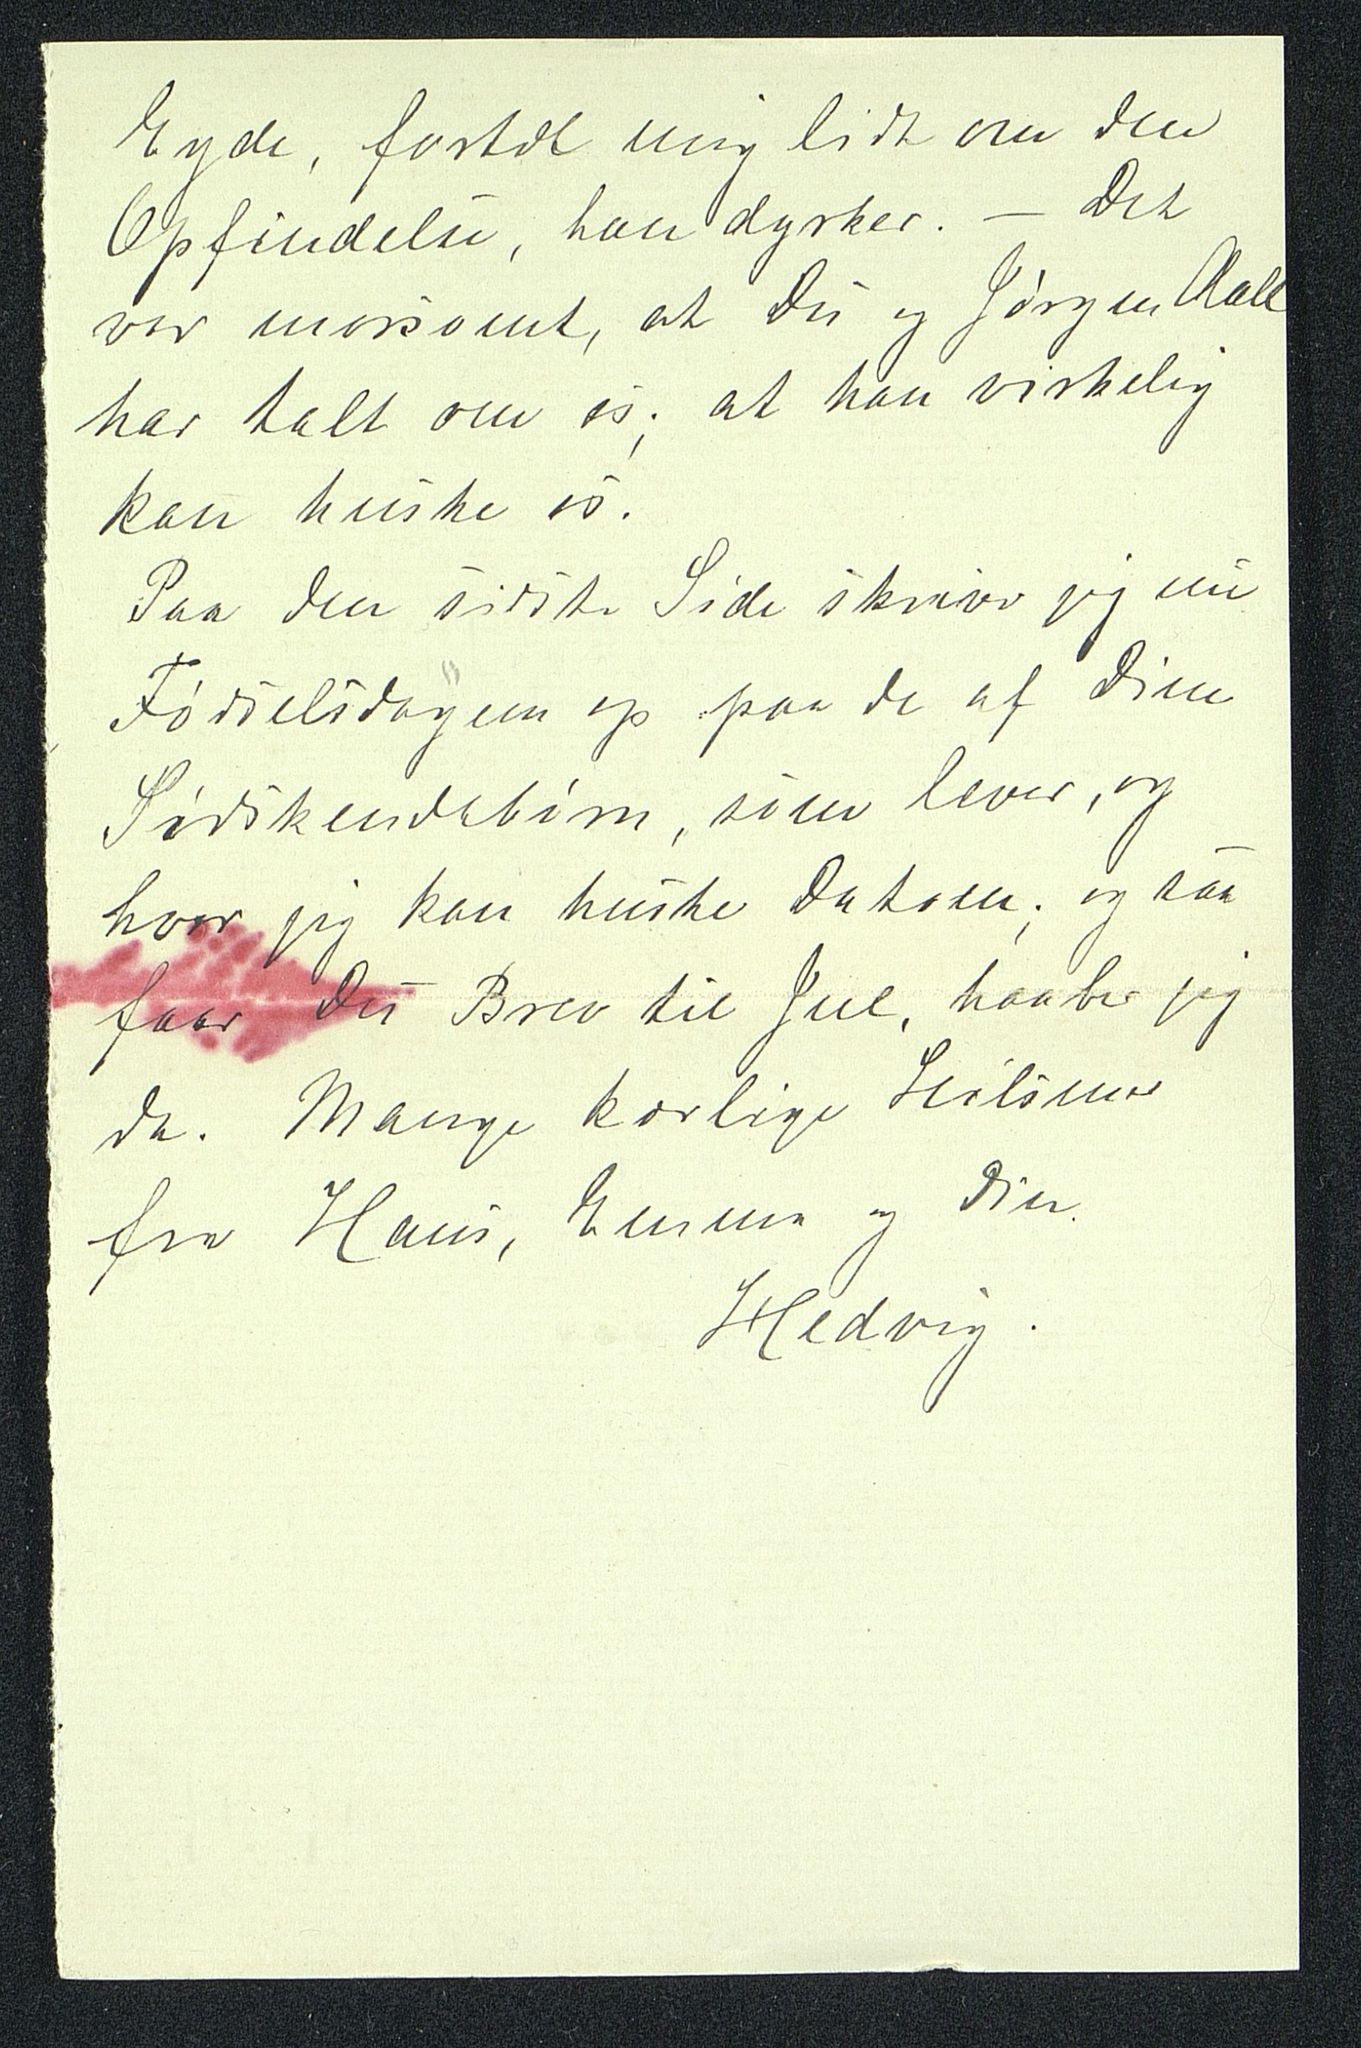 Eyde, fortæl mig lidt om den
Opfindelse, han dyrker. — Det
var morsomt, at Du og Jörgen Aall
har talt om os; at han virkelig
kan huske os.
Paa den sidste Side skriver jeg nu
Födselsdagene op paa de af Dine
Södskendebörn, som lever, og
hvor jeg kan huske Datoen; og saa
faar Du Brev til Jul, haaber jeg
da. Mange kærlige Hilsener
fra Hans, Emma og Din
Hedvig.